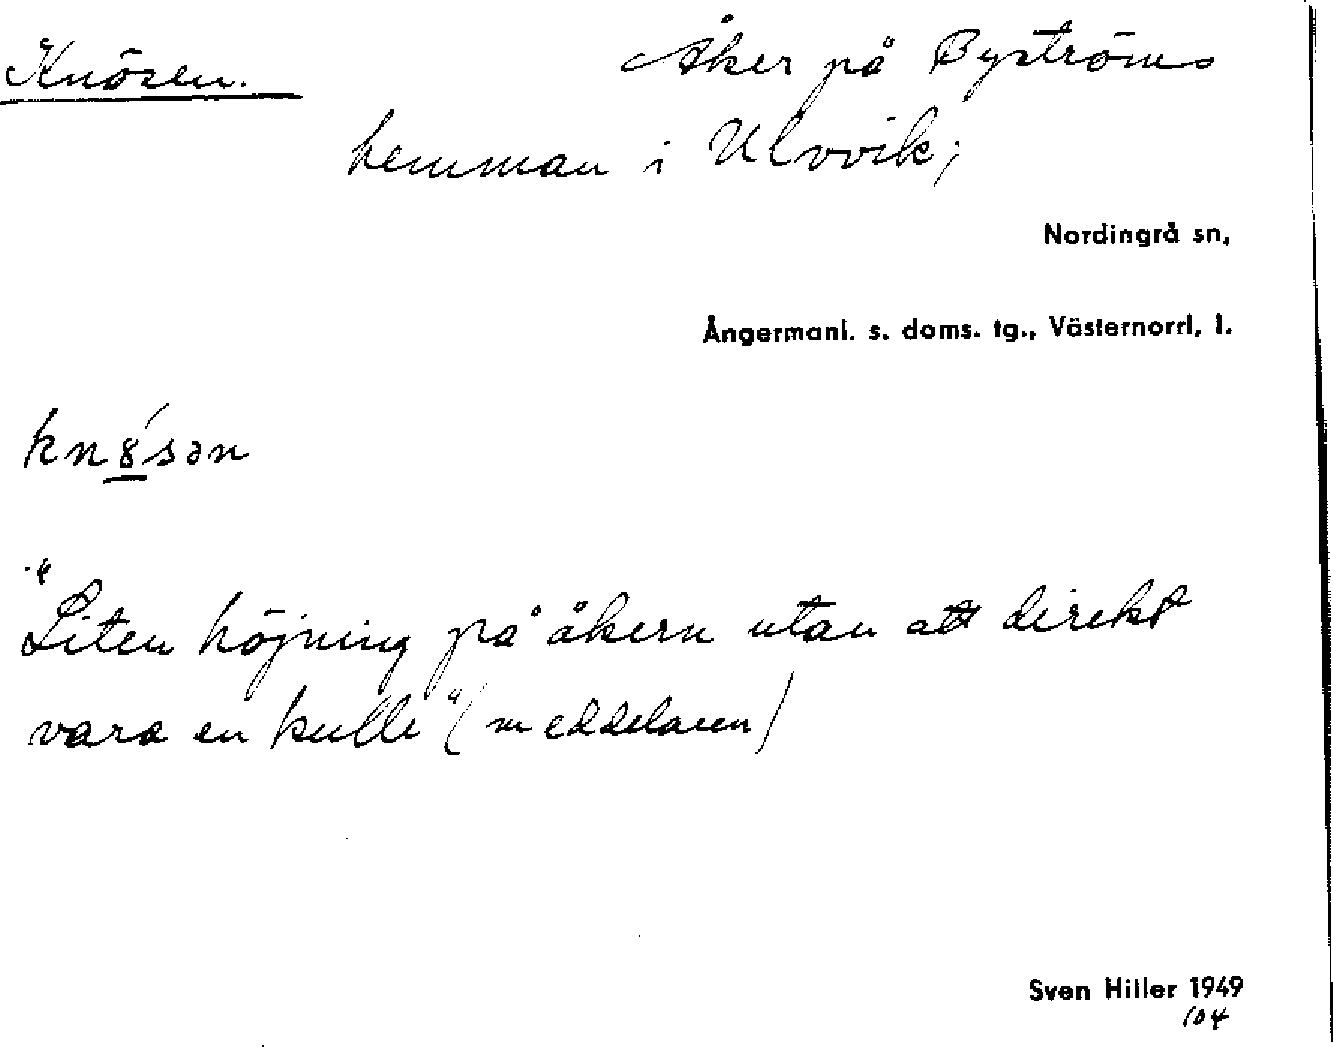 Knösen. Åker på Byströms
hemman i Ulvvik;
Nordingrå sn,
Ångermanl. s. doms. tg., Västernorrl. l.
kn8̲´sən
"Liten höjning på åkern utan att direkt
vara en kulle" (meddelaren)
Sven Hiller 1949
104